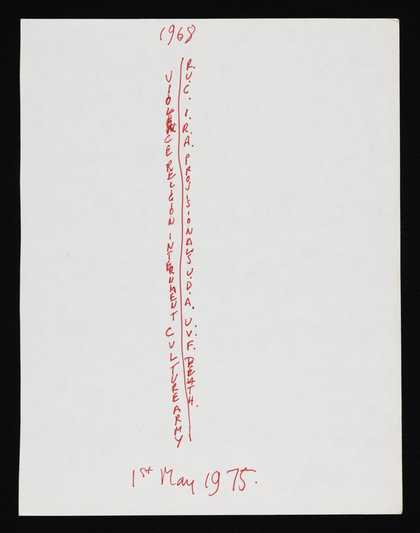 1968
VIOLENCE RELIGION INTERNMENT CULTURE ARMY
R.U.C. I.R.A. PROVISIONALS U.D.A. U.V.F. DEATH.
1st May 1975.